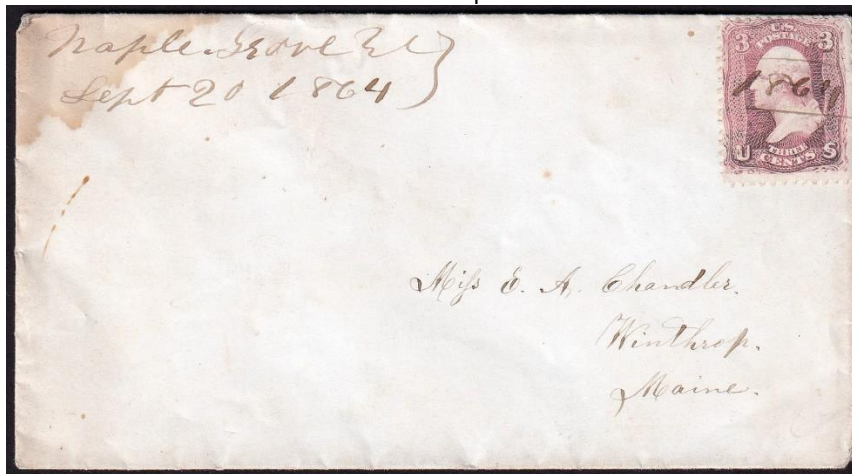 Maple Grove Ill
Sept 20 1864
3 U.S. 3
POSTAGE
1864
U THREE S
CENTS
Miss E. A. Chandler.
Winthrop.
Maine.